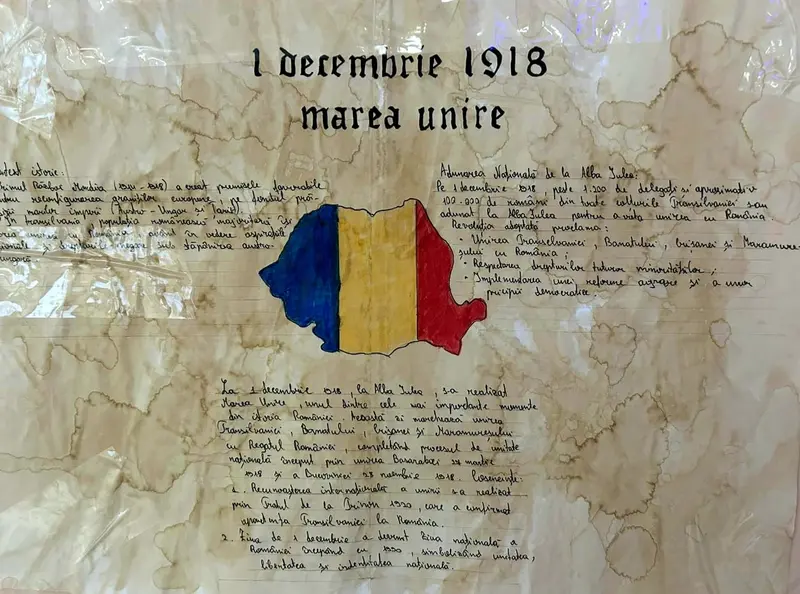 1 decembrie 1918
marea unire
istoric:
Primul Război Mondial (1914-1918) a creat premisele favorabile
reconfigurarea granițelor europene, pe fondul
marilor imperii (Austro-Ungar și Țarist).
În Transilvania populația românească majoritară își
unirea cu România, având în vedere aspirațiile
și drepturile negate sub stăpânirea austro-
ungară
Adunarea Națională de la Alba Iulia:
Pe 1 decembrie 1918, peste 1.200 de delegați și aproximativ
100.000 de români din toate colturile Transilvaniei s-au
adunat la Alba Iulia pentru a vota unirea cu România.
Rezoluția adoptată proclama:
• Unirea Transilvaniei, Banatului, Crișanei și Maramure-
șului cu România;
• Respectarea drepturilor tuturor minorităților;
• Implementarea unei reforme agrare și a unor
principii democratice.
La 1 decembrie 1918, la Alba Iulia, s-a realizat
Marea Unire, unul dintre cele mai importante momente
din istoria României. Această zi marchează unirea
Transilvaniei, Banatului, Crișanei și Maramureșului
cu Regatul României, completând procesul de unitate
națională început prin unirea Basarabiei 27 martie
1918 și a Bucovinei 28 noiembrie 1918.
1. Recunoașterea internațională a unirii s-a realizat
prin Tratul de la Trianon 1920, care a confirmat
Transilvaniei la România.
2. Ziua de 1 decembrie a devenit Ziua națională a
României începând cu 1990, simbolizând unitatea,
libertatea și indentitatea națională.